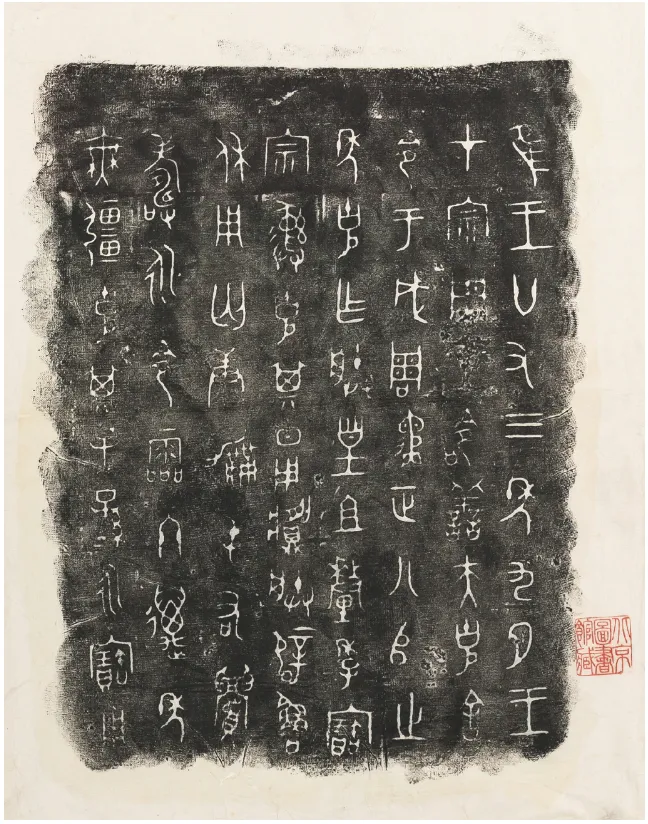 隹王廿又三年九月王
才宗周王命善夫克舍
令于成周遹正八𠂤之
年克乍朕皇且釐季寶
宗彝克其日用䵼朕辟魯
休用匄康勵屯右眉
壽永令霝冬邁年
無彊克其子子孫孫永寶用
北京
圖書
館藏